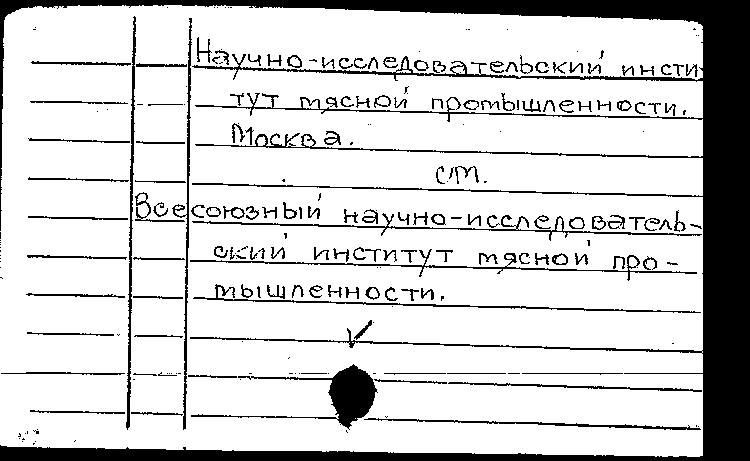 Научно-исследовательский инсти-
тут мясной промышленности.
Москва.
см.
Всесоюзный научно-исследователь-
ский институт мясной про-
мышленности.